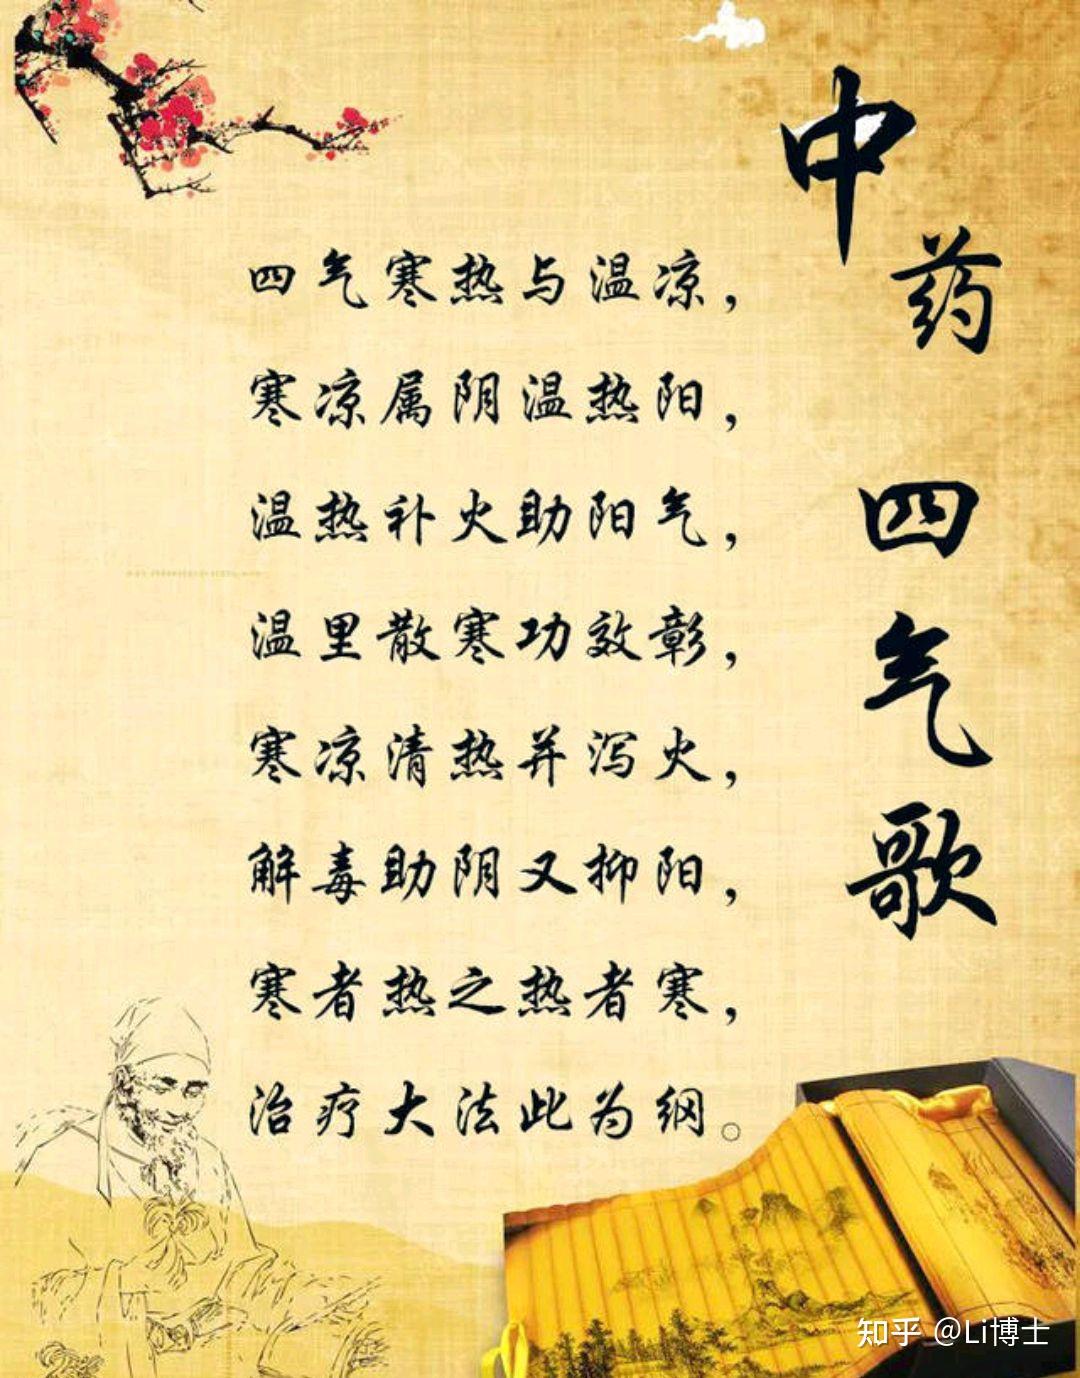 中药四气歌
四气寒热与温凉，
寒凉属阴温热阳，
温热补火助阳气，
温里散寒功效彰，
寒凉清热并泻火，
解毒助阴又抑阳，
寒者热之热者寒，
治疗大法此为纲。
知乎 @Li博士